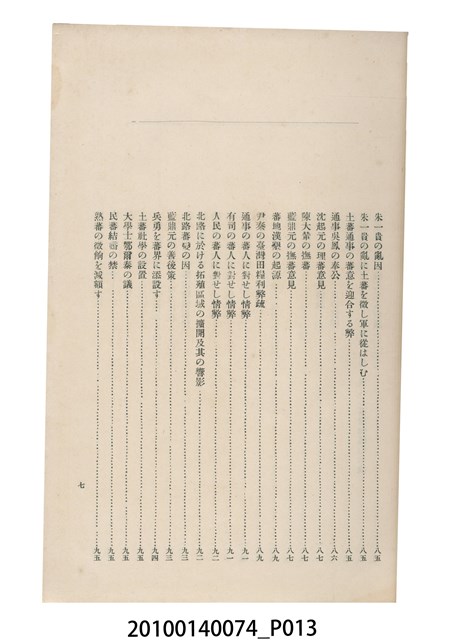 朱一貴の亂因……八五
朱一貴の亂に土蕃を徵し軍に從はしむ……八五
土蕃通事の蕃意を迎合する弊……八五
通事吳鳳の奉公……八六
沈起元の理蕃意見……八七
陳大輦の撫蕃……八七
藍鼎元の撫蕃意見……八七
蕃地漢墾の起源……八九
尹秦の臺灣田糧利弊疏……八九
通事の蕃人に對せし情弊……九一
有司の蕃人に對せし情弊……九一
人民の蕃人に對せし情弊……九二
北路に於ける拓殖區域の擴開及其の響影……九二
北路蕃變の因……九三
藍鼎元の善後策……九三
兵勇を蕃界に添設す……九四
土蕃社學の設置……九五
大學士鄂爾泰の議……九五
民蕃結婚の禁……九五
熟蕃の徵餉を減額す……九五
七
20100140074_P013